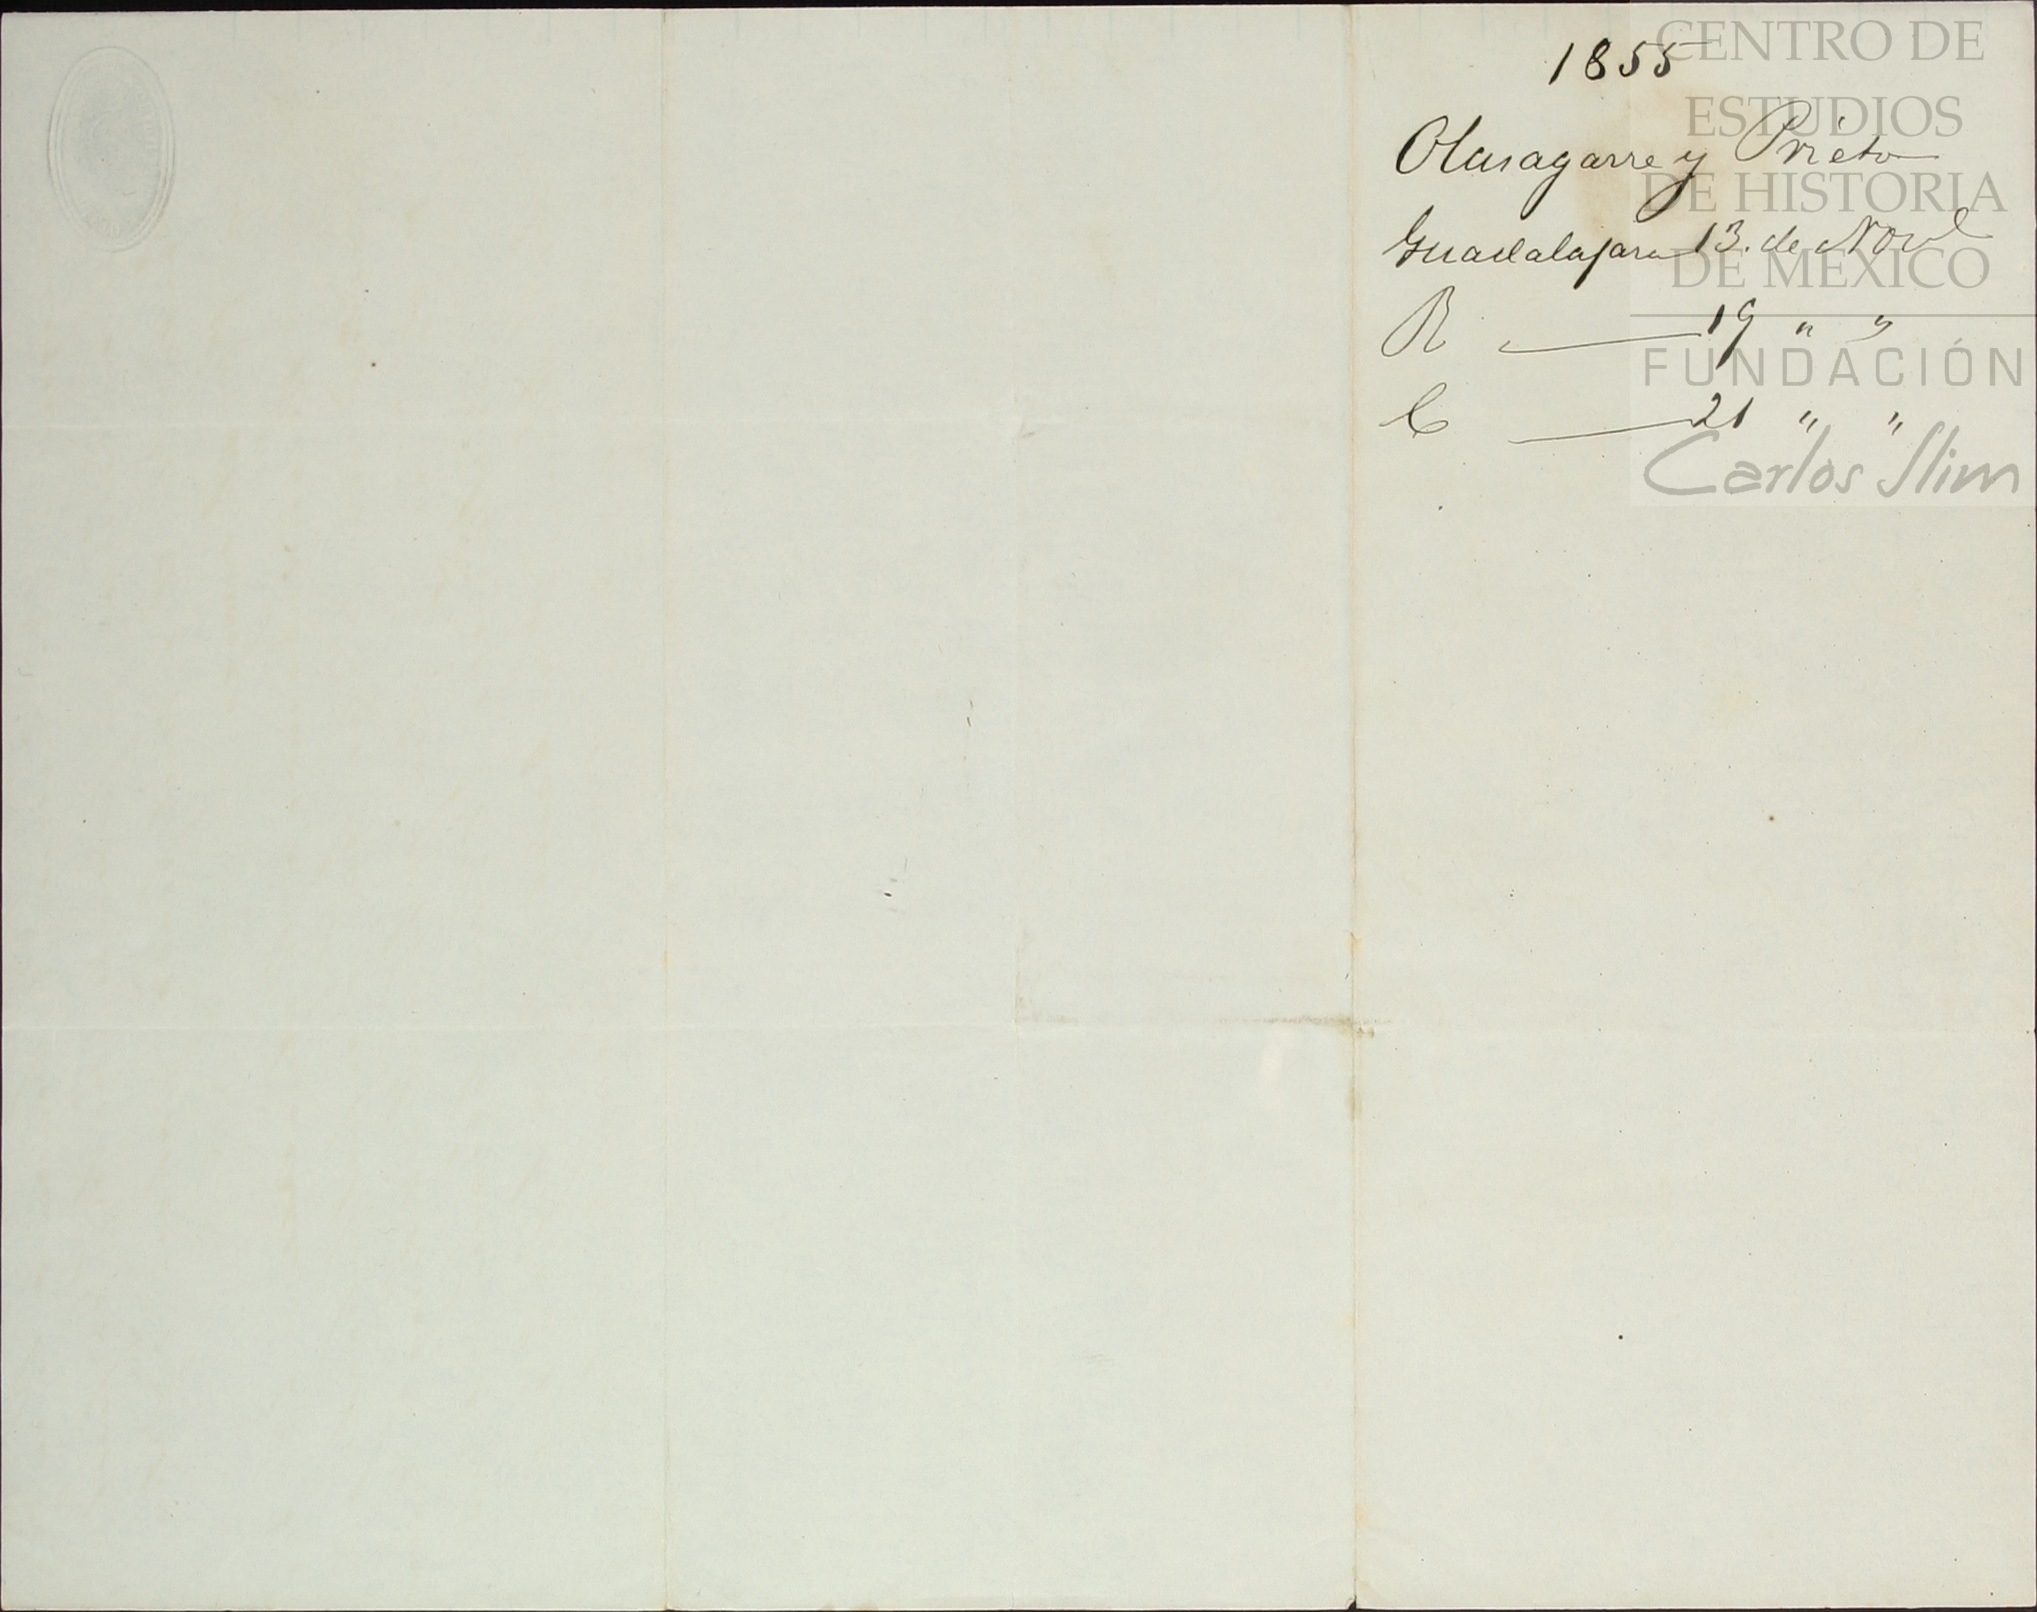 1855
Olasagarre y Prieto
Guadalajara 13. de Nov.e
R ——— 19 " "
C ——— 21 " "
CENTRO DE
ESTUDIOS
DE HISTORIA
DE MÉXICO
FUNDACIÓN
Carlos Slim